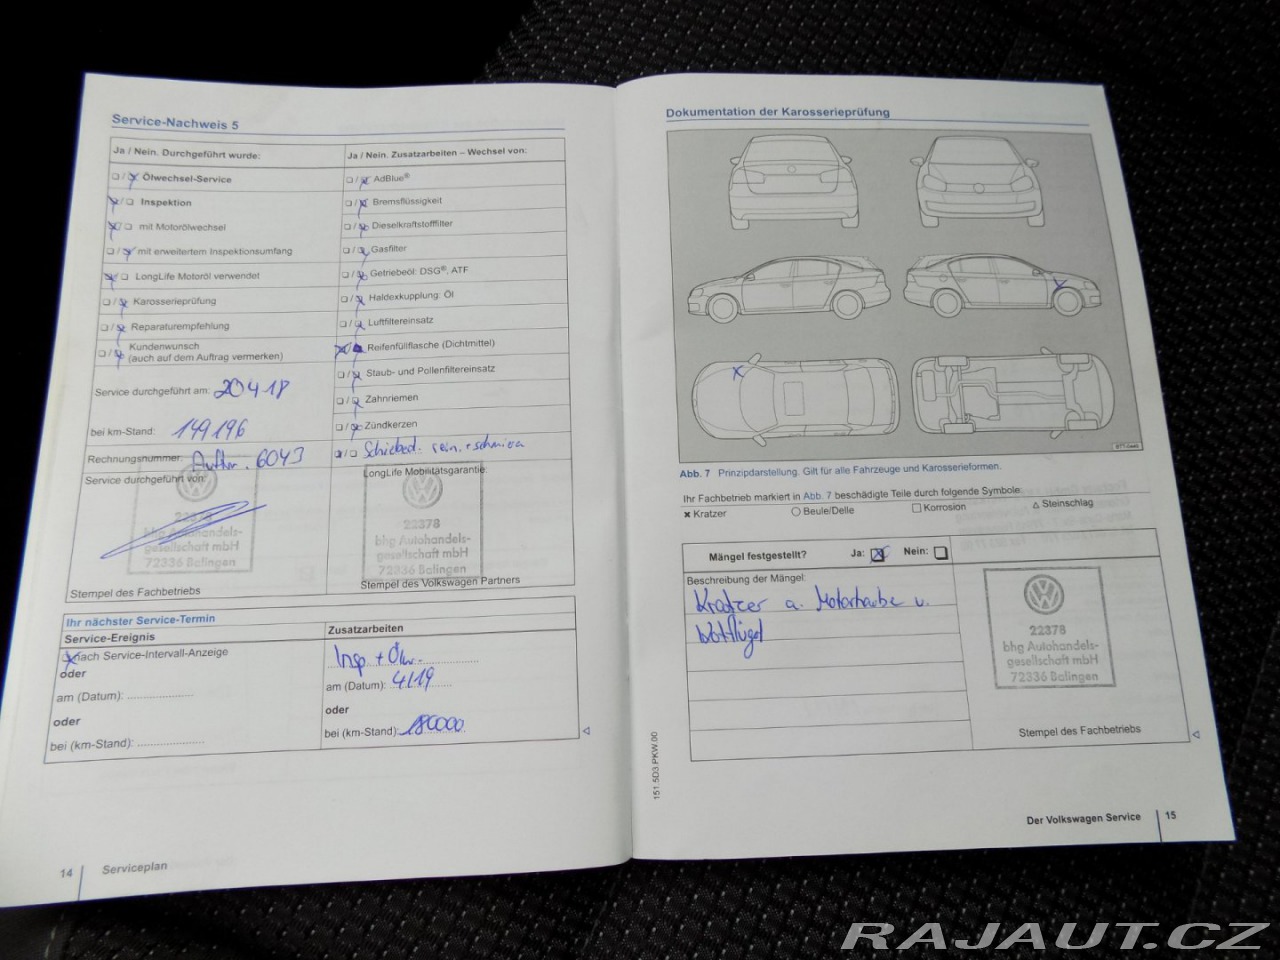 Service-Nachweis 5
Ja / Nein. Durchgeführt wurde:
Ölwechsel-Service
Inspektion
mit Motorölwechsel
mit erweitertem Inspektionsumfang
LongLife Motoröl verwendet
Karosserieprüfung
Reparaturempfehlung
Kundenwunsch
(auch auf dem Auftrag vermerken)
Service durchgeführt am: 20 4 18
bei km-Stand: 149196
Rechnungsnummer: Auftr. 6043
Service durchgeführt von:
22378
bhg Autohandels-
gesellschaft mbH
72336 Balingen
Stempel des Fachbetriebs
Ja / Nein. Zusatzarbeiten – Wechsel von:
AdBlue®
Bremsflüssigkeit
Dieselkraftstofffilter
Gasfilter
Getriebeöl: DSG®, ATF
Haldexkupplung: Öl
Luftfiltereinsatz
Reifenfüllflasche (Dichtmittel)
Staub- und Pollenfiltereinsatz
Zahnriemen
Zündkerzen
Schiebed. rein. + schmieren
LongLife Mobilitätsgarantie:
22378
bhg Autohandels-
gesellschaft mbH
72336 Balingen
Stempel des Volkswagen Partners
Ihr nächster Service-Termin
Service-Ereignis
nach Service-Intervall-Anzeige
oder
am (Datum):
oder
bei (km-Stand):
Zusatzarbeiten
Insp + Ölw.
am (Datum): 4/19
oder
bei (km-Stand): 180000
14 Serviceplan
Dokumentation der Karosserieprüfung
Abb. 7 Prinzipdarstellung. Gilt für alle Fahrzeuge und Karosserieformen.
Ihr Fachbetrieb markiert in Abb. 7 beschädigte Teile durch folgende Symbole:
Kratzer Beule/Delle Korrosion Steinschlag
Mängel festgestellt? Ja: Nein:
Beschreibung der Mängel:
Kratzer a. Motorhaube u.
Kotflügel
22378
bhg Autohandels-
gesellschaft mbH
72336 Balingen
Stempel des Fachbetriebs
151.5D3.PKW.00
Der Volkswagen Service 15
RAJAUT.CZ